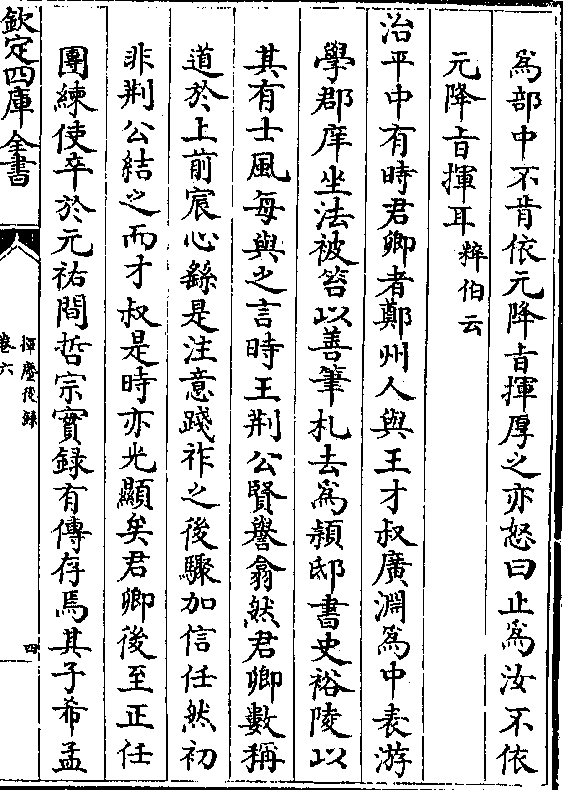 爲部中不肯依元降㫖揮厚之亦怒曰止爲汝不依
元降㫖揮耳粹伯云
治平中有時君卿者鄭州人與王才叔廣淵爲中表游
學郡庠坐法被笞以善筆札去爲頴邸書史裕陵以
其有士風每與之言時王荆公賢譽翕然君卿數稱
道於上前宸心繇是注意踐祚之後驟加信任然初
非荆公結之而才叔是時亦光顯矣君卿後至正任
團練使卒於元祐間哲宗實録有傳存焉其子希孟
欽定四庫全書
揮麈後録
卷六
四